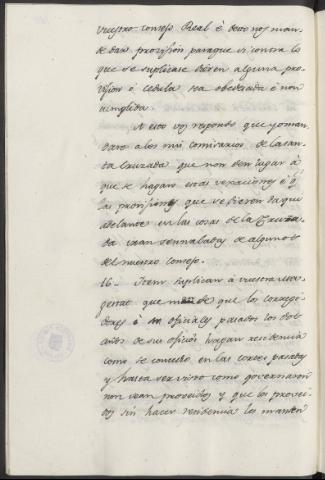 vuestro consejo Real é desto nos man-
de dar provisión para que si contra lo
que se suplicase dieren alguna pro-
visión ó cedula sea obedecida é non
cumplida.
A esto vos respondo que yo man-
daré a los mis comisarios de la san-
ta Cruzada que non den lugar á
que se hagan estas vexaciones é q
las provisiones que se dieren da qui
adelante en las cosas de la Cruza-
da vaan sennaladas de algunos
del nuestro consejo.
16.- Iten suplican á vuestra ma-
gestat que mande que los corregi-
dores é sus oficiales pasados los dos
años de sus oficios hagan residencia
como se concedió en las cortes pasadas
y hasta ser visto como governaron
non sean proveidos y que los provei-
dos sin hacer residencia los manden